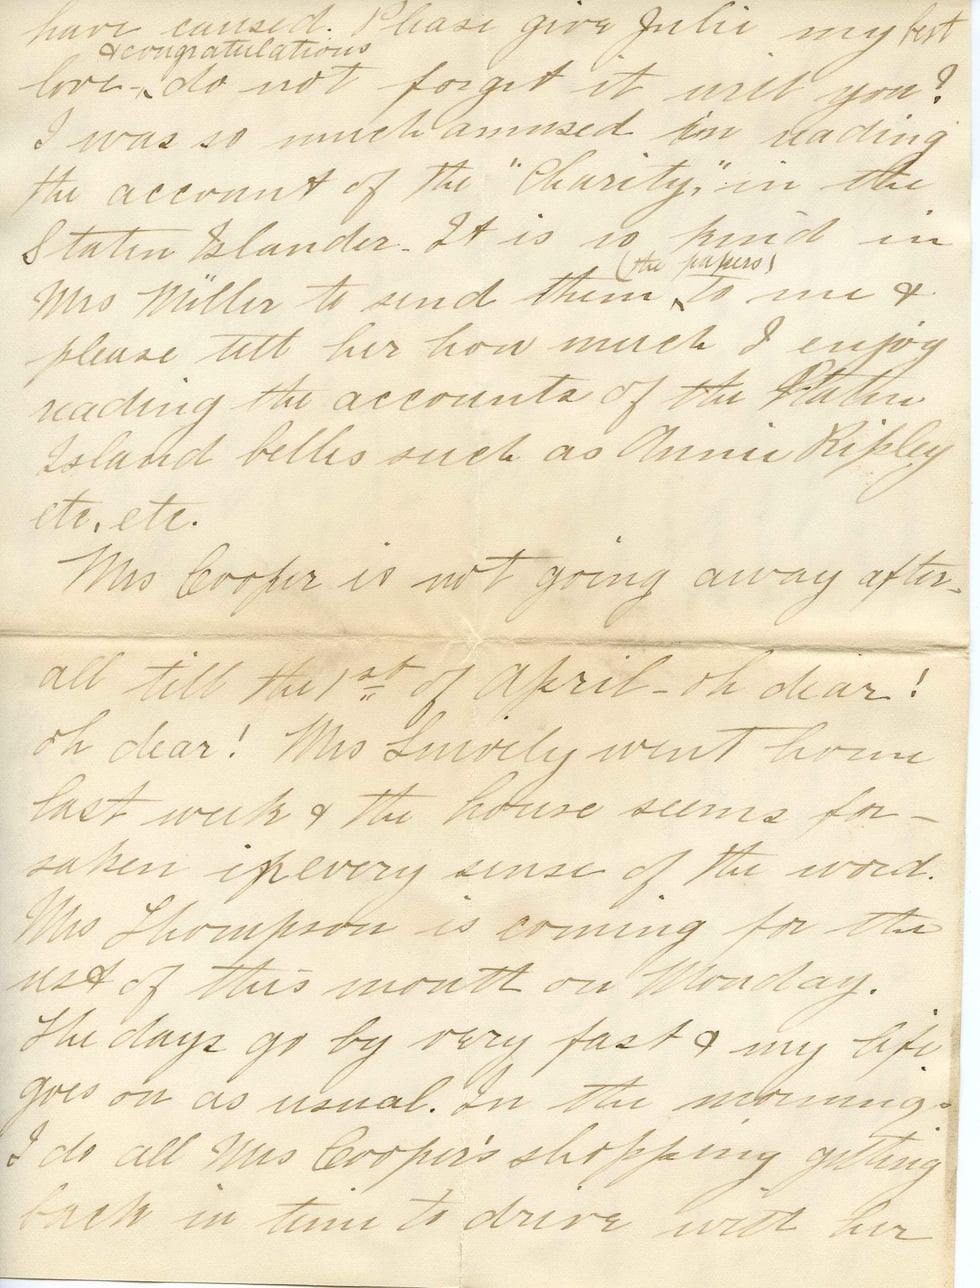 have caused. Please give Julie my best
& congratulations
love - do not forget it will you?
I was so much amused in reading
the account of the "Charity," in the
Staten Islander. It is so kind in
(the papers)
Mrs Müller to send them to me &
please tell her how much I enjoy
reading the accounts of the Staten
Island belles such as Annie Ripley
etc, etc.
Mrs Cooper is not going away after-
all till the 1st of April - oh dear!
oh dear! Mrs Snively went home
last week & the house seems for-
saken in every sense of the word.
Mrs Thompson is coming for the
rest of this month on Monday.
The days go by very fast & my life
goes on as usual. In the mornings
I do all Mrs Cooper's shopping getting
back in time to drive with her